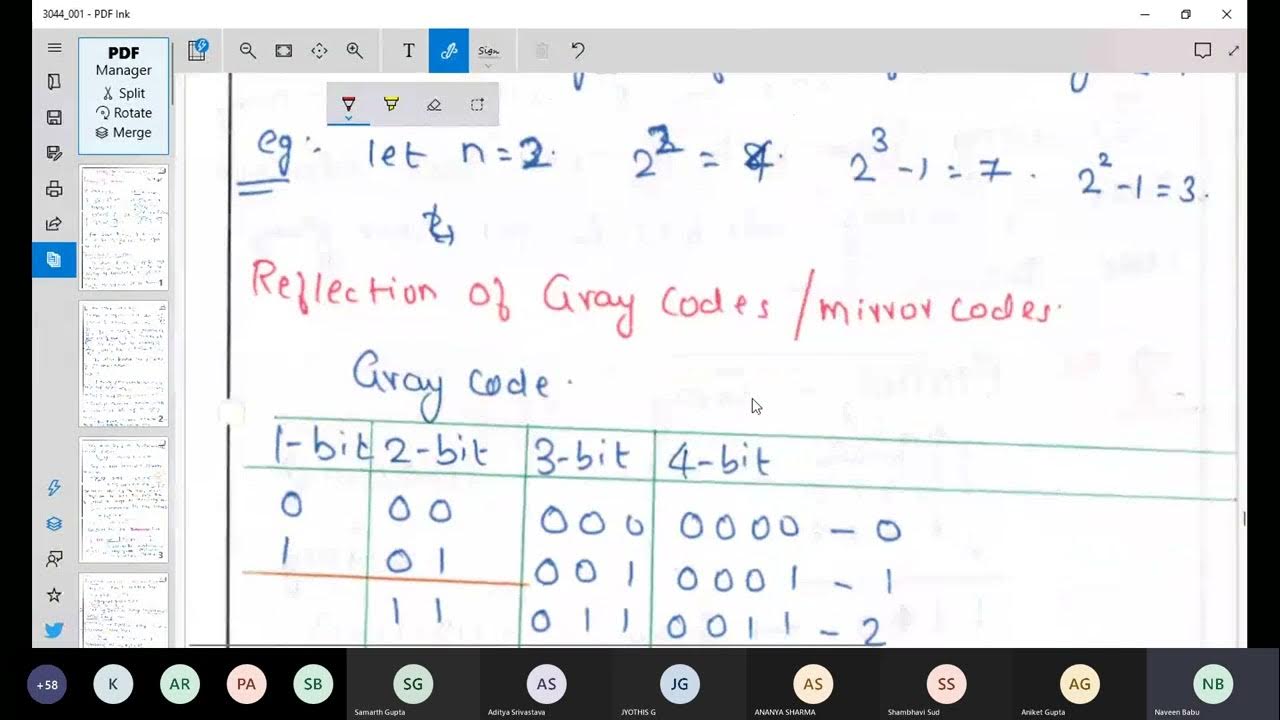 3044_001 - PDF Ink
PDF
Manager
Split
Rotate
Merge
T
Sign
eg:- let n = 2. 2² = 4. 2³ - 1 = 7. 2² - 1 = 3.
Reflection of Gray Codes / mirror codes.
Gray code.
1-bit 2-bit 3-bit 4-bit
0 00 000 0000 - 0
1 01 001 0001 - 1
11 011 0011 - 2
1
2
3
+58 K AR PA SB SG AS JG AS SS AG NB
Samarth Gupta Aditya Srivastava JYOTHIS G ANANYA SHARMA Shambhavi Sud Aniket Gupta Naveen Babu